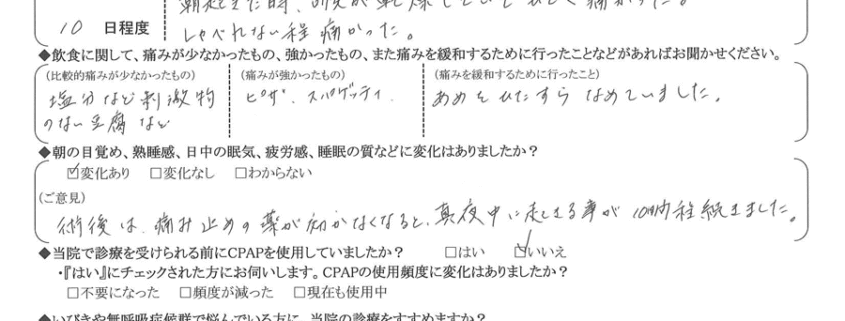 朝起きた時、
痛かった。
10 日程度
しゃべれない程痛かった。
◆飲食に関して、痛みが少なかったもの、強かったもの、また痛みを緩和するために行ったことなどがあればお聞かせください。
(比較的痛みが少なかったもの) (痛みが強かったもの) (痛みを緩和するために行ったこと)
塩分など刺激物 ピザ、スパゲッティ. あめをひたすらなめていました。
のない豆腐など
◆朝の目覚め、熟睡感、日中の眠気、疲労感、睡眠の質などに変化はありましたか?
☑変化あり □変化なし □わからない
(ご意見)
術後は、痛み止めの薬が効かなくなると、真夜中に起きる事が10日間程続きました。
◆当院で診療を受けられる前にCPAPを使用していましたか? □はい ☑いいえ
・『はい』にチェックされた方にお伺いします。CPAPの使用頻度に変化はありましたか?
□不要になった □頻度が減った □現在も使用中
◆いびきや無呼吸症候群で悩んでいる方に、当院の診療をすすめますか?